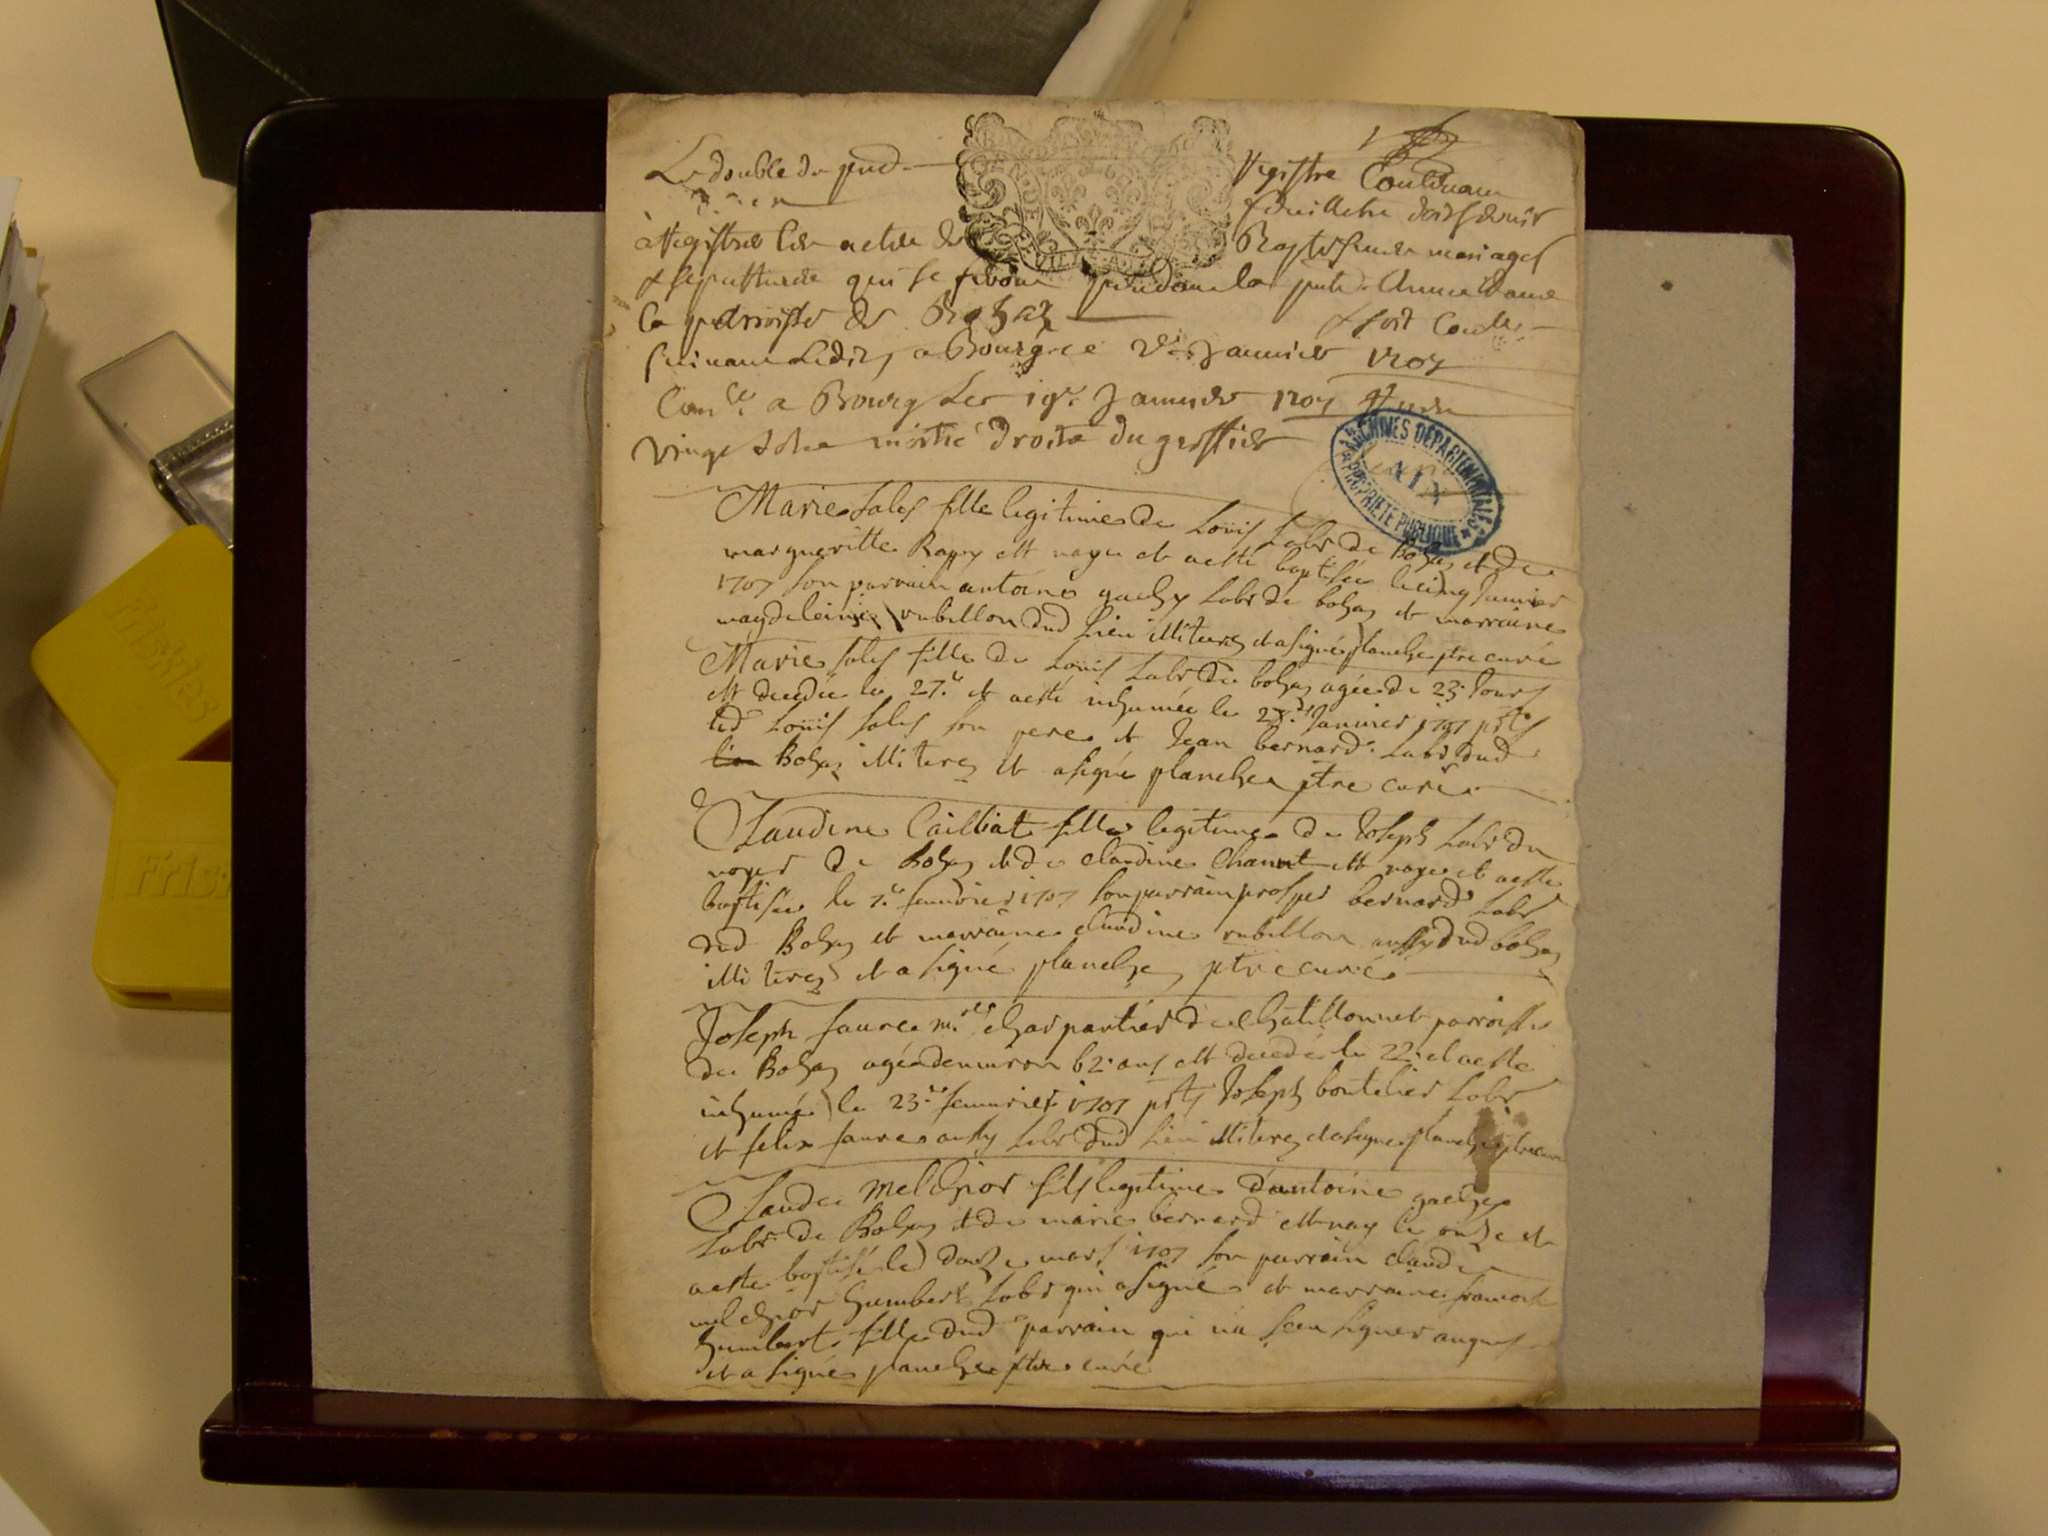 Le double du
Registre Contenant
feuillets
à Registrer les actes de
Baptesmes mariages
& sepultures qui se feront pendant la
la parroisse de Bohaz
a Bourg ce Janvier 1707
a Bourg Le 19e Janvier 1707
vingt sols moitié droits du greffier
ARCHIVES DEPARTEMENTALES
AIN
PROPRIETE PUBLIQUE
Marie Sales fille legitime de Loüis Labr de Bohaz et de
margueritte Rapy est naye et aesté baptisée le cinq Janvier
1707 son parrain antoine gachy Labr de bohaz et marraine
magdeleine rubillon dud lieu illiterez et a signé planche ptre curé
Marie Sales fille de Loüis Labr de bohaz agée de 23 Jours
est decedée le 27e et aesté inhumée le 28e Janvier 1707 pnts
led Loüis Sales son pere et Jean bernard Labr dud
Bohaz illiterez et a signé planche ptre curé
Claudine Cailliat fille legitime de Joseph Labr du
noyer de Bohaz et de claudine Chanut est naye et aesté
baptisée le 7e feuvrier 1707 son parrain prosper bernard Labr
dud Bohaz et marraine claudine rubillon aussy dud bohaz
illiterez et a signé planche ptre curé
Joseph faure me charpantier de Chatillonnet parroisse
de Bohaz agé denviron 62 ans est decedé le 22 et aesté
inhumé le 23e feuvrier 1707 pnts Joseph boutelier Labr
et felix faure aussy Labr dud lieu illiterez et a signe planche ptre curé
Claude melchior fils legitime d'antoine gache
Labr de Bohaz et de marie bernard est nay le onze et
aesté baptisé le douze mars 1707 son parrain claude
melchior humbert Labr qui a signé et marraine
humbert fille dud parrain qui n'a sceu signer
et a signé planche ptre curé
Friskies
Fris